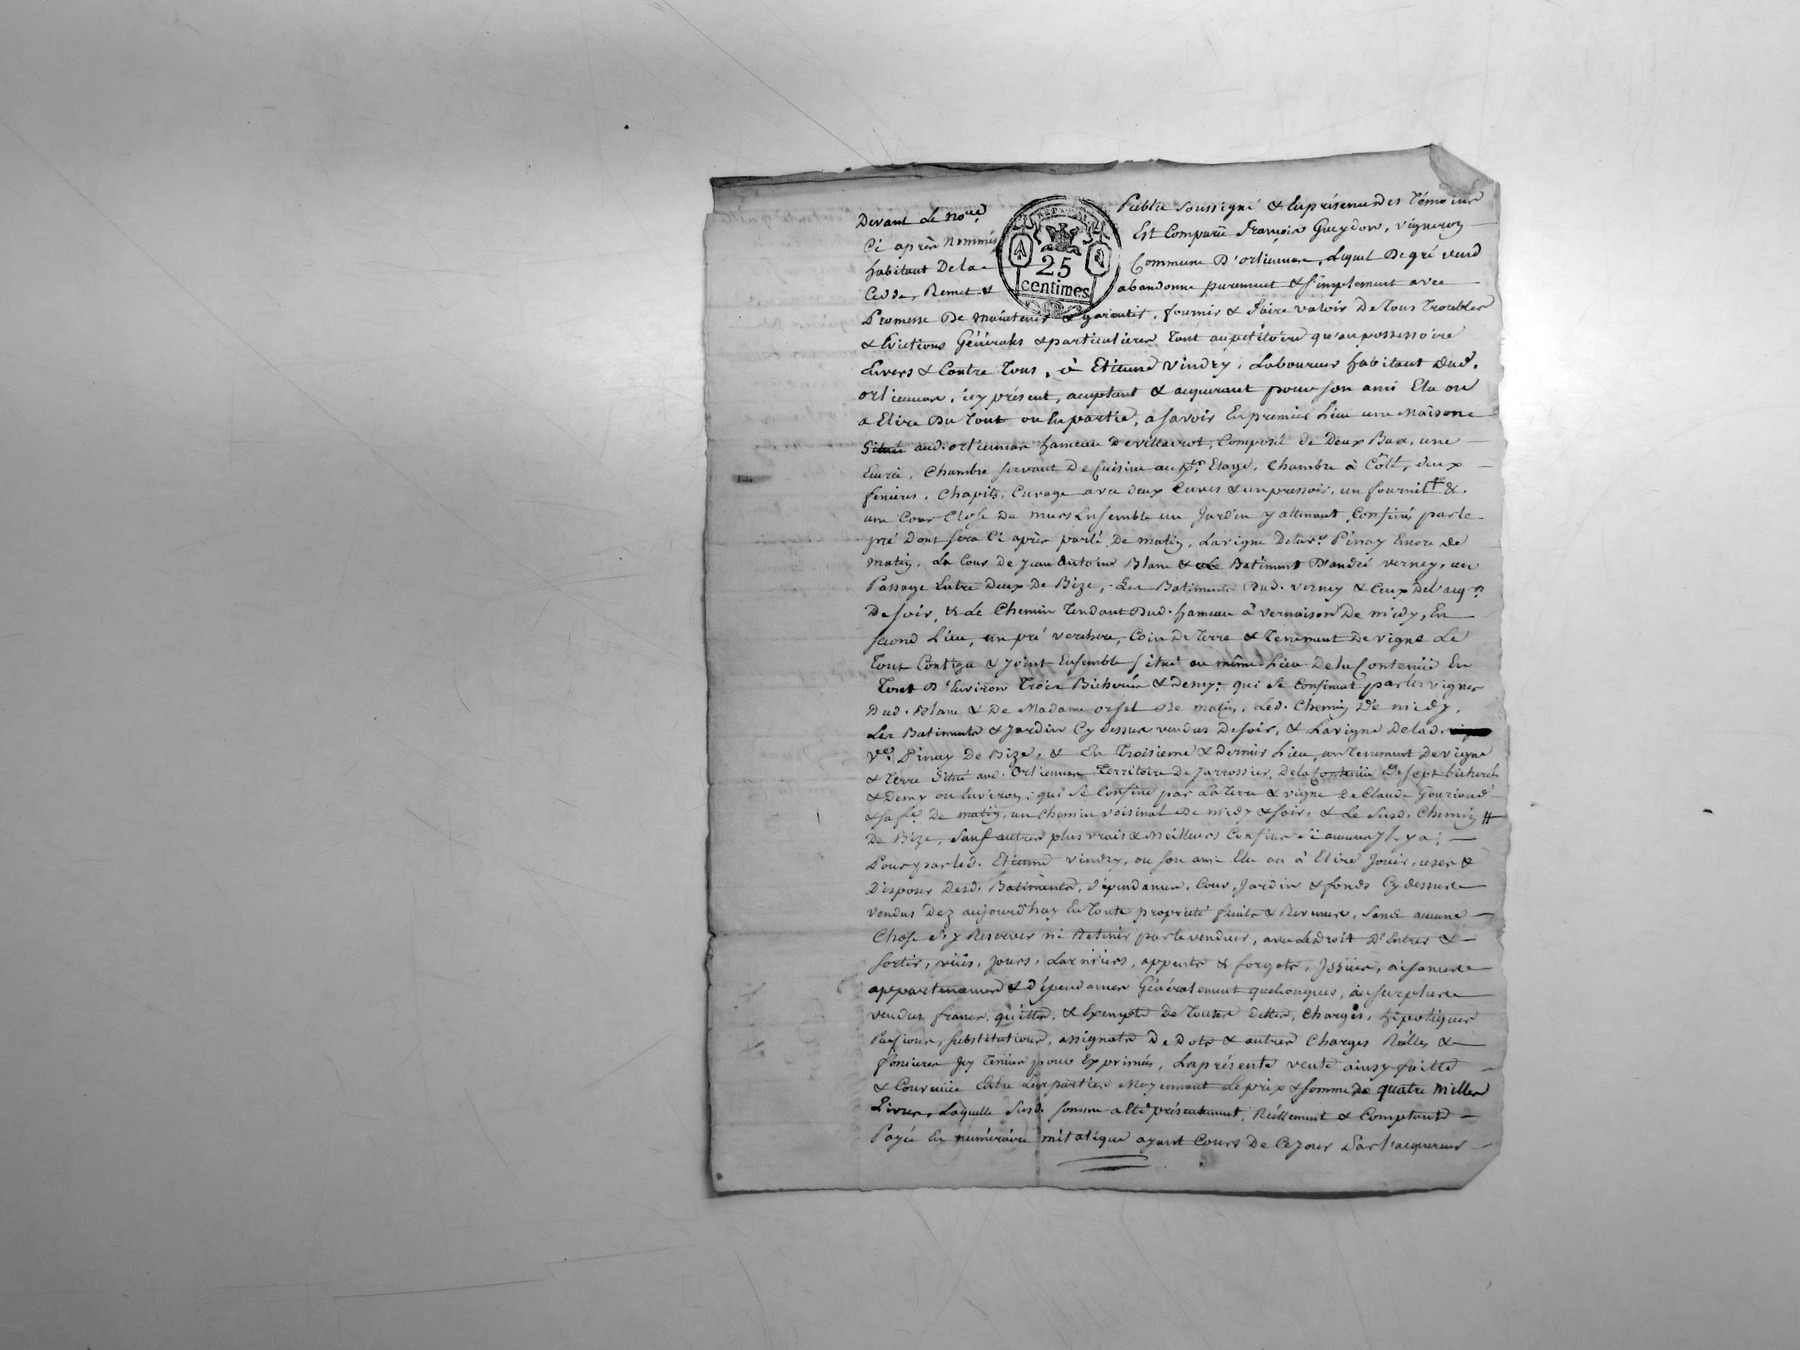 Devant Le no.re Public soussigné & En présence des Témoins
Ci après nommés Est Comparü François Gueydon, vigneron
habitant De la Commune D'orliennas, Lequel De gré vend
Cedde, Remet & abandonne purement & simplement avec
Promesse De maintenir & garantir, fournir & faire valoir De tous Troubles
& Evictions Générales & particulières Tant au petitoire qu'au possessoire
Envers & Contre Tous, à Etienne Vindry, Laboureur habitant Dud.
orliennas, icy présent, acceptant & acquerant pour son ami Elu ou
a Elire Du Tout ou En partie, a savoir En premier Lieu une maison
Située aud. orliennas hameau De villacrot, Composé de Deux Bas, une
Ecurie, Chambre servant De Cuisine au p.r Etage, Chambre à Côté, deux
fenières, Chapits, Cuvage avec deux Cuves & un pressoir, un fournil &
une Cour Close De murs Ensemble un Jardin y attenant, Confinés par le
pré Dont sera Ci après parlé De matin, La vigne De la v.e Pinay Encore de
matin, La Cour De Jean Antoine Blanc & Le Batiment D'andré verney, un
Passage Entre Deux De Bize, Les Batiments Dud. verney & Ceux De l'acq.r
De soir, & Le Chemin Tendant Dud. hameau à vernaison De midy, En
second Lieu, un pré verchere, Coin De Terre & Tenement De vigne Le
Tout Contigu & Joint Ensemble situé au même Lieu De la Contenüe En
Tout D'Environ Trois Bicherées & Demy, qui se Confinent par les vignes
Dud. Blanc & De Madame orsel De matin, Led. Chemin De midy,
Les Batiments & Jardin Cy dessus vendus De soir, & La vigne De lad.
V.e Pinay De Bize, & En Troisieme & Dernier Lieu, un Tenement De vigne
& Terre Situé aud. Orliennas Territoire De Jarrossier, De la Contenüe De sept bicherées
& Demy ou Environ, qui se Confine par La Terre & vigne De Claude Gourioud
& sa f.e De matin, un Chemin voisinal De midy & soir, & Le Susd. Chemin
De Bize, Sauf autres plus vrais & meilleurs Confins si aucuns Il y a;
Pour par led. Etienne Vindry, ou son ami Elu ou à Elire Jouir, user &
Disposer Desd. Batiments, Dépendances, Cour, Jardin & fonds Cy dessus
vendus Dez aujourd'huy En Toute propriété fruits & Revenus, Sans aucune
Chose s'y Reserver ni Retenir par le vendeur, avec Le Droit D'Entrer &
sortir, vües, Jours, Larmiers, appents & forgets, Issües, aisances
appartenances & Dépendances Généralement quelconques, au surplus
vendus francs, quittes, & Exempts De Toutes Dettes, Charges, hipotèques
Pensions, substitutions, assignats De Dots & autres Charges Réelles &
foncieres Icy Tenües pour Exprimées, La présente vente ainsy faitte
& Convenüe Entre Les parties Moyennant Le prix & somme De quatre Milles
Livres, Laquelle Susd. somme a Eté présentement, Réellement & Comptant
Payée En numéraire métalique ayant Cours De Ce Jour Par l'acquereur
REP. FRA.
25
centimes